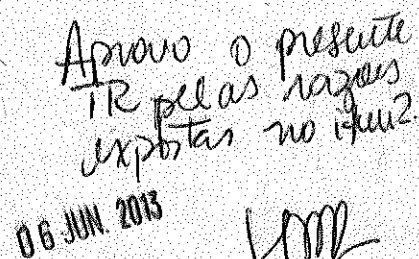 Aprovo o presente
TR pelas razões
expostas no item 2.
06 JUN. 2013